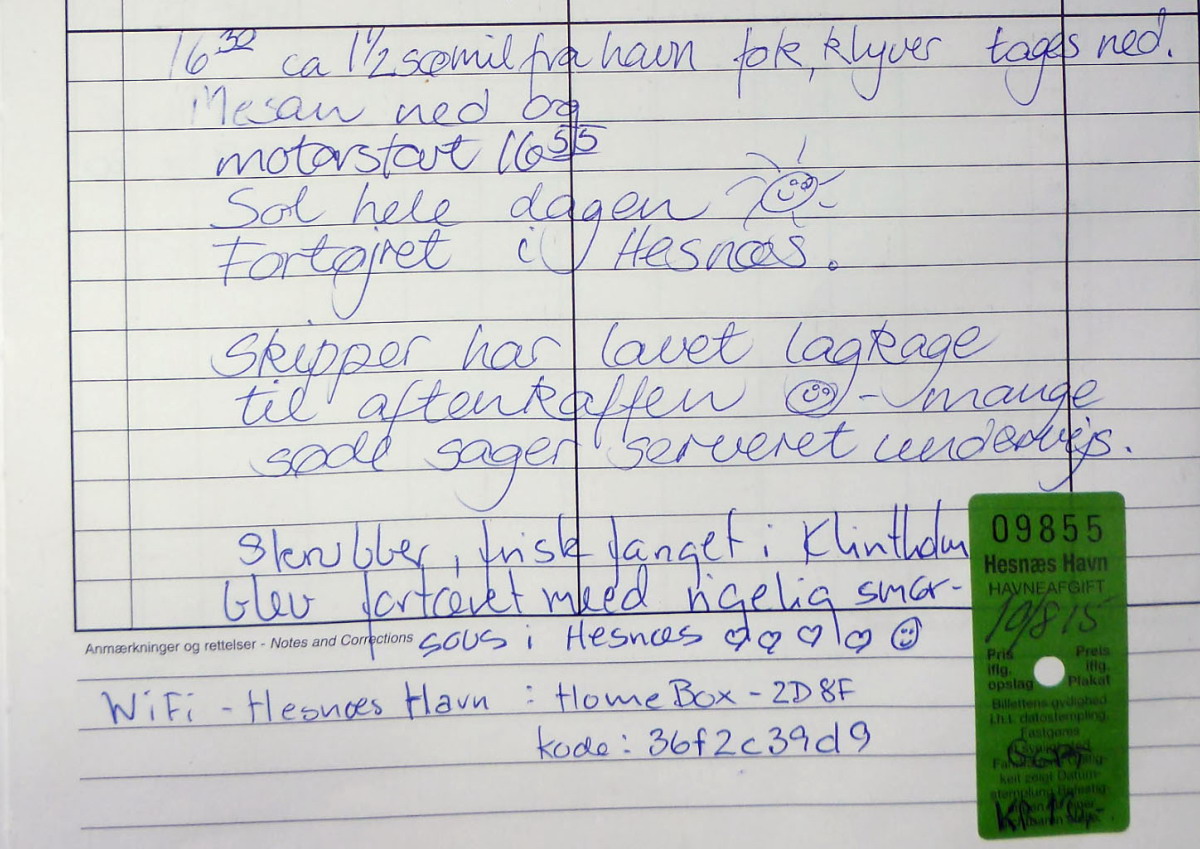 16³⁰ ca 1½ sømil fra havn fok, klyver tages ned.
Mesan ned og
motorstart 16⁵⁵
Sol hele dagen
Fortøjret i Hesnæs.
Skipper har lavet lagkage
til aftenkaffen - mange
søde sager serveret undervejs.
Skrubber, frisk fanget i Klintholm
blev fortæret med rigelig smør-
sovs i Hesnæs
Anmærkninger og rettelser - Notes and Corrections
WiFi - Hesnæs Havn : HomeBox - 2D8F
kode: 36f2c39d9
09855
Hesnæs Havn
HAVNEAFGIFT
10/8 15
Pris Preis
iflg. iflg.
opslag Plakat
Billettens gyldighed
i.h.t. datostempling.